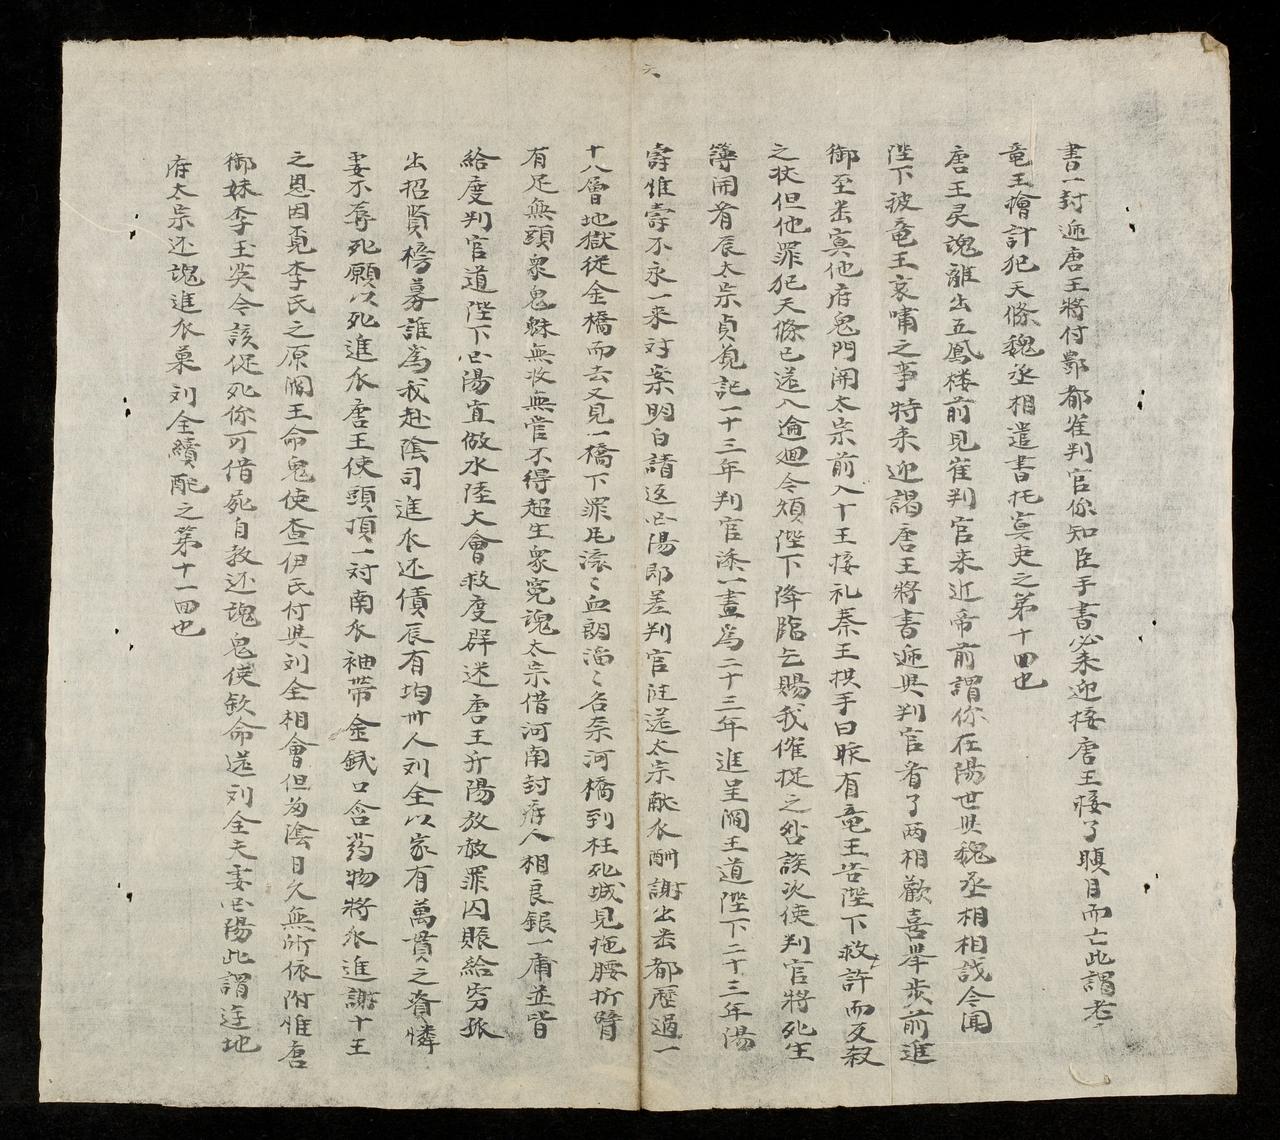 六
書一封逓唐王將付酆都崔判官你知臣手書必來迎接唐王接了瞋目而亡此謂老〻
竜王獪計犯天條魏丞相遣書托冥吏之第十四也
唐王灵魂離出五鳳楼前見崔判官来近帝前謂你在陽世與魏丞相相識今聞
陛下被竜王哀嘯之事特来迎謁唐王將書逓與判官看了兩相歡喜舉步前進
御至岳冥他府鬼門開太宗前入十王接礼秦王拱手曰眹有竜王告陛下救許而反殺
之状但他罪犯天條已送入逾廻今煩陛下降臨乞賜我催捉之咎談次使判官將死生
簿開看辰太宗貞𮗚記一十三年判官添一畫為二十三年進呈閻王道陛下二十三年陽
壽惟壽不永一来対案明白請返囬陽即差判官註送太宗献𤓰酬謝出岳都歷過一
十八層地獄從金橋而去又見一橋下罪凡滚〻血朗滔〻名奈河橋到枉死城見拖腰折臂
有足無頭衆鬼魅無收無管不得超生衆冤魂太宗借河南封府人相良銀一庫並皆
給度判官道陛下囬陽宜做水陸大會救度群迷唐王升陽放赦罪囚賑給穷孤
出招賢榜募誰為我赴陰司進𤓰还債辰有均州人刘全以家有萬貫之資憐
妻不辜死願以死進𤓰唐王使頭頂一対南𤓰袖帶金錢口含药物將𤓰進謝十王
之恩因覓李氏之原閻王命鬼使查伊氏付與刘全相會但為陰日久無所依附惟唐
御妹李玉英今該促死你可借死自教还魂鬼使欽命送刘全夫妻囬陽此謂逰地
府太宗还魂進𤓰菓刘全續配之第十一回也